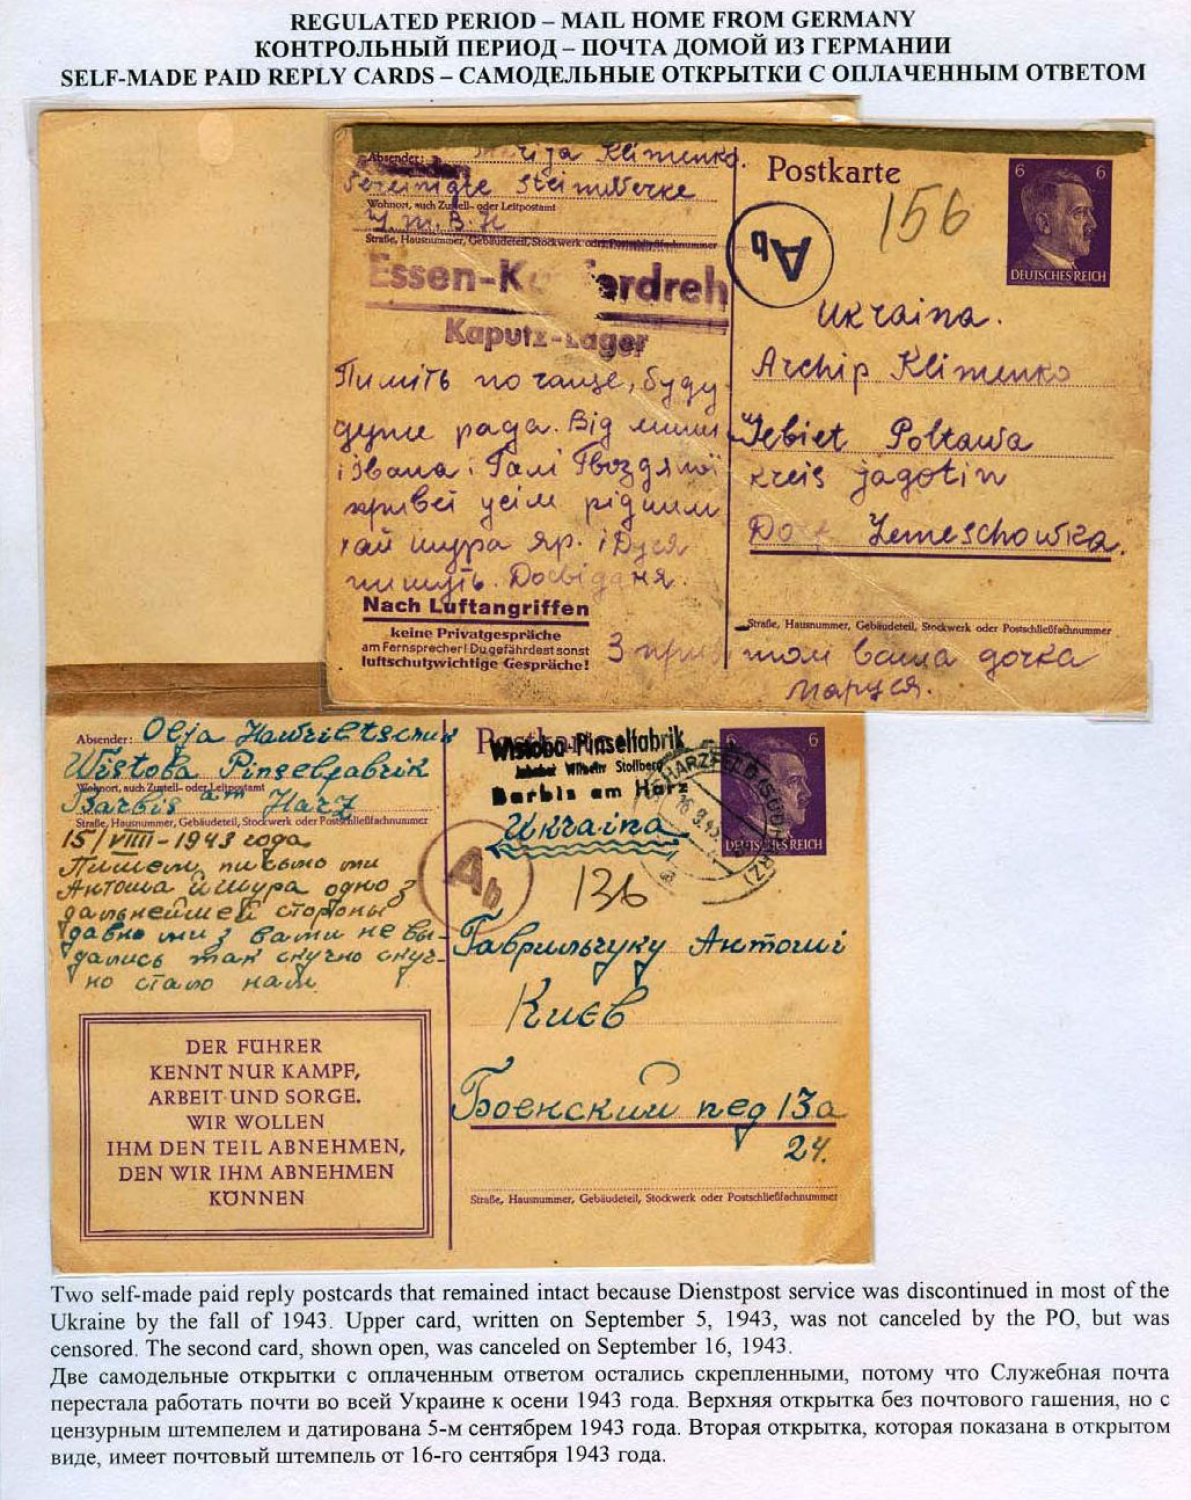 REGULATED PERIOD – MAIL HOME FROM GERMANY
КОНТРОЛЬНЫЙ ПЕРИОД – ПОЧТА ДОМОЙ ИЗ ГЕРМАНИИ
SELF-MADE PAID REPLY CARDS – САМОДЕЛЬНЫЕ ОТКРЫТКИ С ОПЛАЧЕННЫМ ОТВЕТОМ
Absender: Klimenko.
Vereinigte
Wohnort, auch Zustell- oder Leitpostamt
Straße, Hausnummer, Gebäudeteil, Stockwerk oder Postschließfachnummer
Essen-K erdreh
Kaputz-Lager
Пишіть по чаще, буду
дуже рада. Від
і Івана і Галі
привет усім рідним
яр. і Дуся
пишуть. Досвіданя.
Nach Luftangriffen
keine Privatgespräche
am Fernsprecher! Du gefährdest sonst
luftschutzwichtige Gespräche!
Postkarte
156
6 6
DEUTSCHES REICH
Ab
Ukraina.
Archip Klimenko
Gebiet Poltawa
Kreis jagotin
Zemeschowka.
Straße, Hausnummer, Gebäudeteil, Stockwerk oder Postschließfachnummer
З ваша дочка
Маруся.
Absender: Olja
Wistoba Pinselfabrik
Wohnort, auch Zustell- oder Leitpostamt
Barbis am Harz
Straße, Hausnummer, Gebäudeteil, Stockwerk oder Postschließfachnummer
15/VIIII-1943 года
Пишем письмо ми
Антоша й шура одно з
дальнейшей стороны
давно ми з вами не ви-
дались так скучно скуч-
но стало нам
DER FÜHRER
KENNT NUR KAMPF,
ARBEIT UND SORGE.
WIR WOLLEN
IHM DEN TEIL ABNEHMEN,
DEN WIR IHM ABNEHMEN
KÖNNEN
Wistoba-Pinselfabrik
Inhaber Wilhelm Stollberg
Barbis am Harz
6 6
DEUTSCHES REICH
16.9.43
Ukraina
Ab
136
Гаврильчуку Антоші
Києв
пед 13а
24.
Straße, Hausnummer, Gebäudeteil, Stockwerk oder Postschließfachnummer
Two self-made paid reply postcards that remained intact because Dienstpost service was discontinued in most of the
Ukraine by the fall of 1943. Upper card, written on September 5, 1943, was not canceled by the PO, but was
censored. The second card, shown open, was canceled on September 16, 1943.
Две самодельные открытки с оплаченным ответом остались скрепленными, потому что Служебная почта
перестала работать почти во всей Украине к осени 1943 года. Верхняя открытка без почтового гашения, но с
цензурным штемпелем и датирована 5-м сентябрем 1943 года. Вторая открытка, которая показана в открытом
виде, имеет почтовый штемпель от 16-го сентября 1943 года.